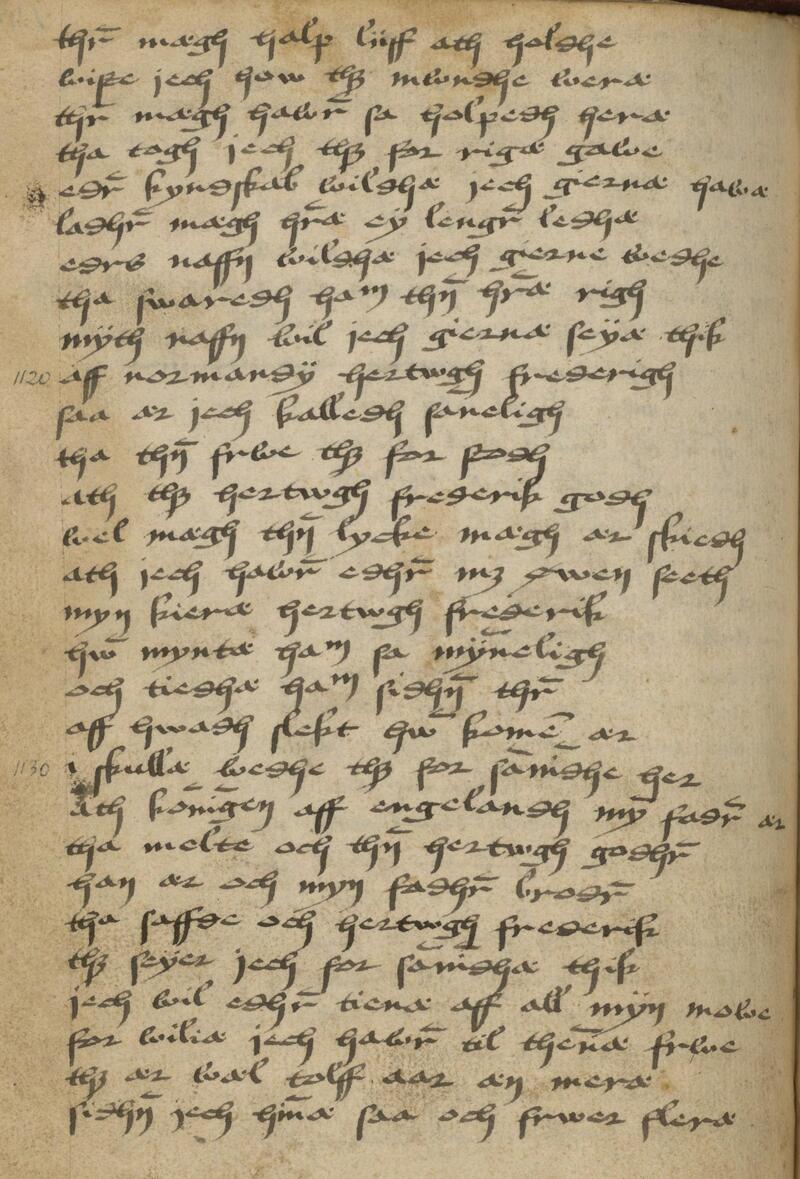 thr̄ mægh halp liiff ath holdhe
wiste jech how thꝫ mwndhe weræ
thr̄ mægh hawr̄ sa holpedh heræ
tha togh jech thꝫ for rigæ gawe
edr̄ kyndskab wildhæ jech giernæ hawæ
ladhr̄ mægh hr̄æ ey lengr̄ ledhæ
edrs naffn wildhæ jech gierne wedhe
tha swaredh ham thn̄ hr̄æ righ
myth naffn wil jech giernæ seyæ thik
1120 aff normandy hertwgh frederigh
saa ær jech kalledh san̄eligh
tha thn̄ frwe thꝫ for stodh
ath thꝫ hertwgh frederik godh
wel mægh thn̄ lycke mægh ær skiedh
ath jech hawr̄ edhr̄ mꝫ øwen seeth
myn kieræ hertwgh frederik
hw̄ myntæ ham sa myn̄eligh
och tiedhæ ham sidhn̄ thr̄
aff hwadh slekt hw̄ komē ær
1130 i skullæ wedhe thꝫ for san̄idhe her
ath kōnīgen aff engelandh mȳ fadr̄ ær
tha melte och thn̄ hertwgh godhr̄
han ær och myn fadhr̄ brodr̄
tha saffde och hertwgh frederik
thꝫ seyer jech for san̄idhæ thik
jech wil edhr̄ tienæ aff all myn mowe
for wiliæ jech hawr̄ til then̄æ frwe
thꝫ ær wæl tolff aar æn meræ
sidhn̄ jech hn̄æ saa och frwer fleræ